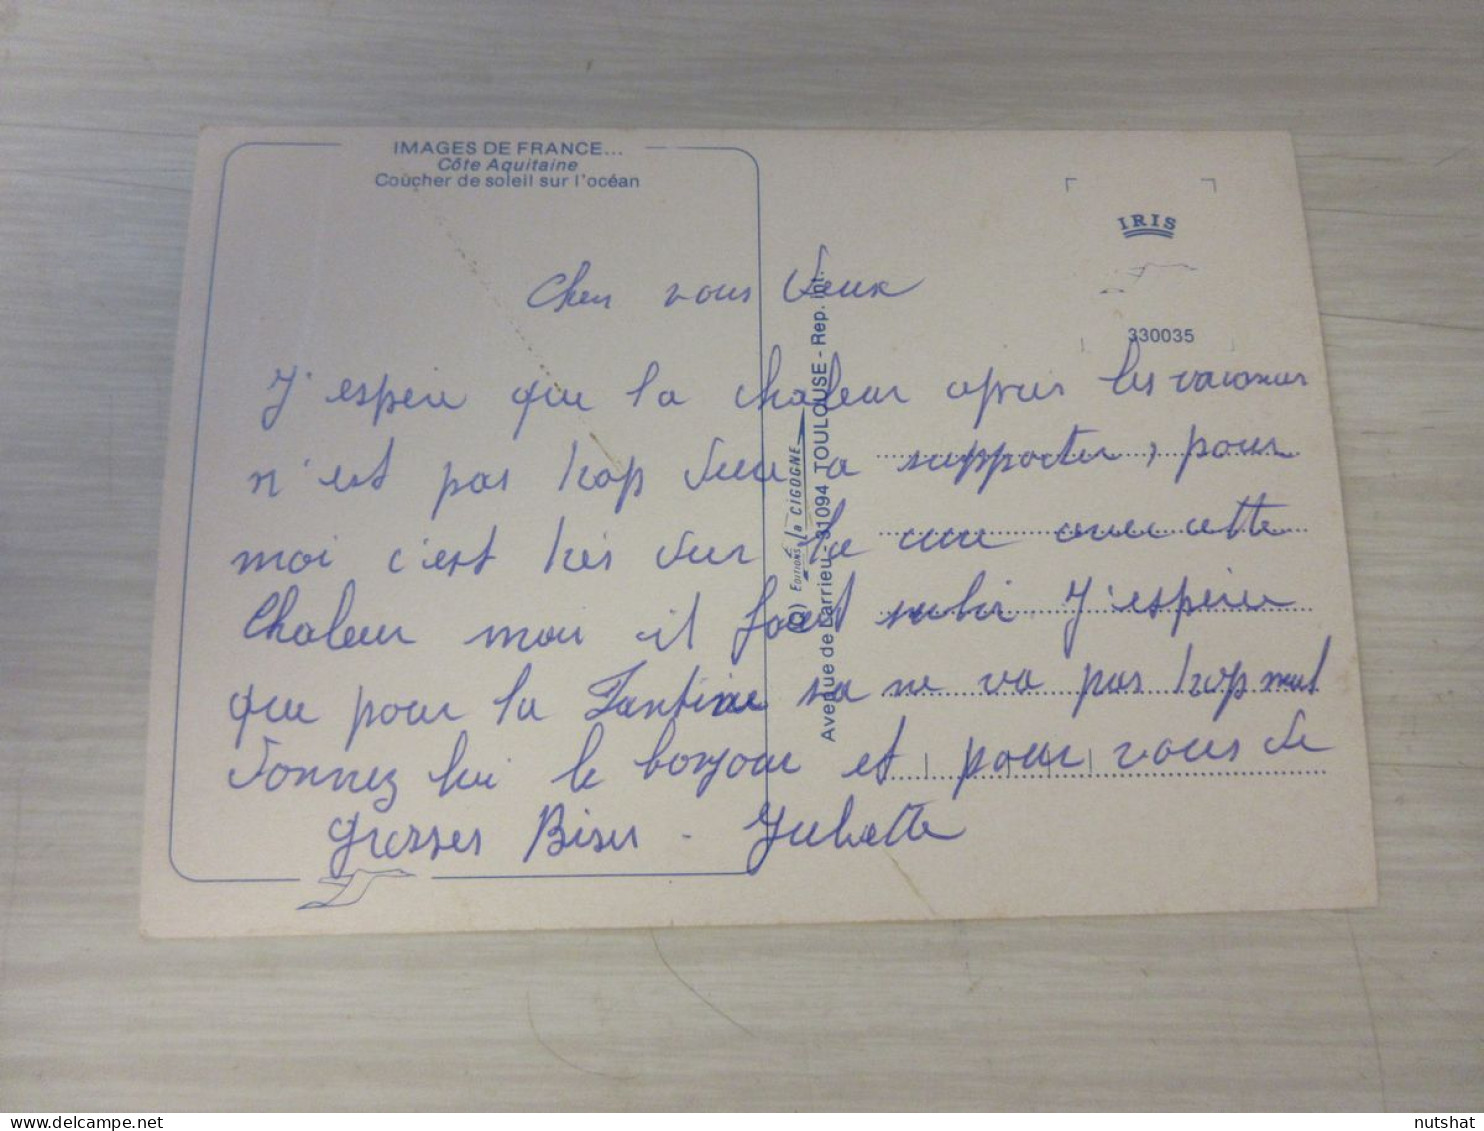 IMAGES DE FRANCE...
Côte Aquitaine
Coucher de soleil sur l'océan
IRIS
330035
Editions la CIGOGNE
Avenue de Larrieu - 31094 TOULOUSE - Rep. int.
Cher vous deux
J'espere que la chaleur apres les vacances
n'est pas trop dure a supporter, pour
moi c'est très dur la cure avec cette
Chaleur mais il faut subir. J'espere
que pour la Tantine sa ne va pas trop mal
donnez lui le bonjour et pour vous de
grosses Bises - Juliette
nutshat